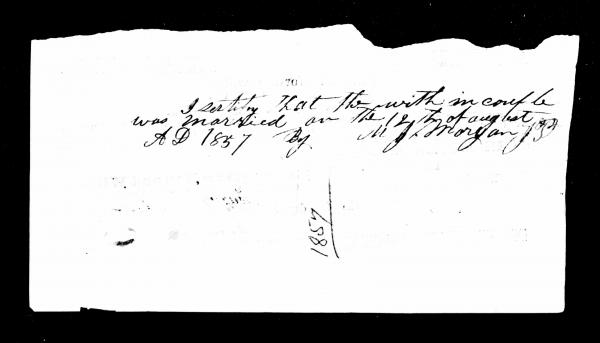 I sertify that the with in couple
was married on the 12th of august
AD 1857 By M J Morgan J P
1857